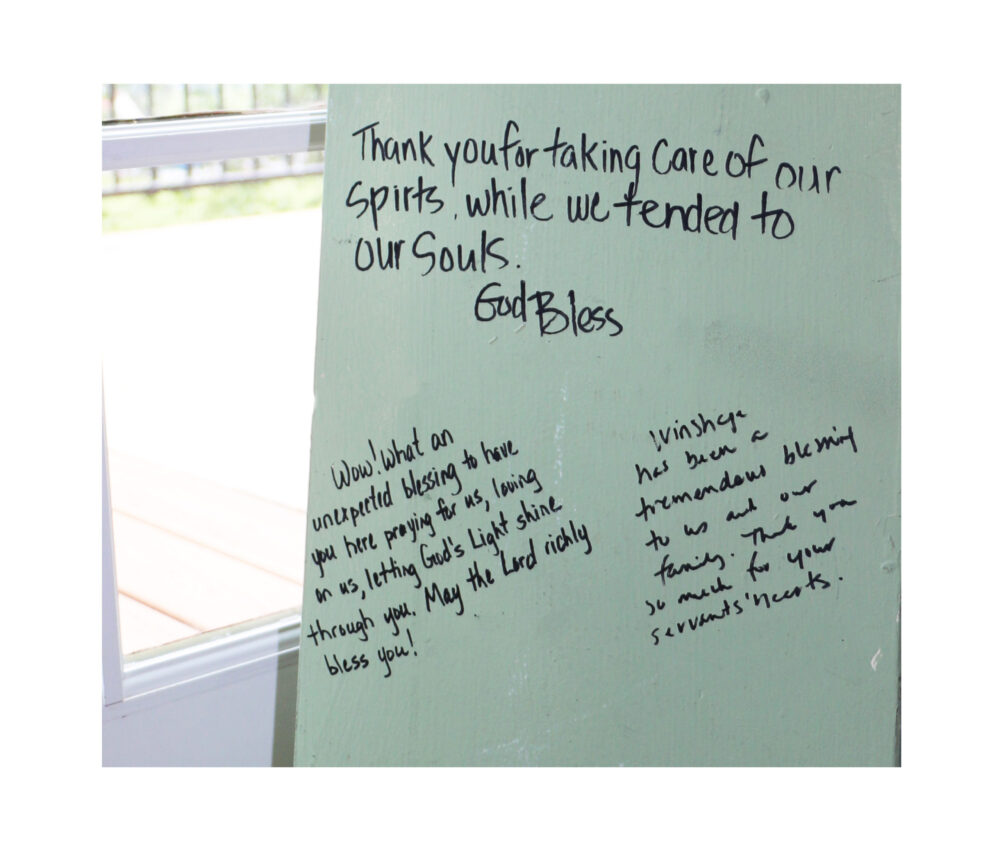 Thank you for taking care of our
spirts, while we tended to
our Souls.
God Bless
Wow! What an
unexpected blessing to have
you here praying for us, loving
on us, letting God's Light shine
through you. May the Lord richly
bless you!
has been a
tremendous blessing
to us and our
family. Thank you
so much for your
servants' hearts.